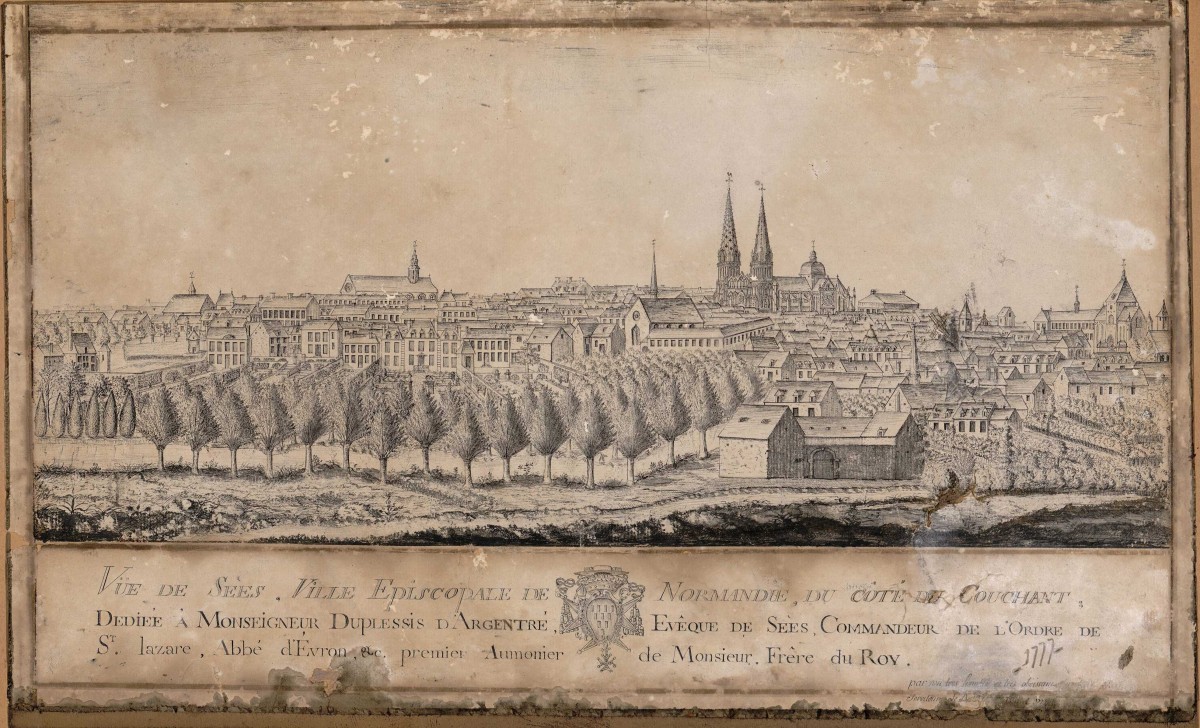 VÜE DE SÈES, VILLE EPISCOPALE DE NORMANDIE, DU CÔTÉ DU COUCHANT,
DEDIÉE À MONSEIGNEUR DUPLESSIS D'ARGENTRÉ, EVÊQUE DE SÈES, COMMANDEUR DE L'ORDRE DE
S.T lazare, Abbé d'Evron, &c. premier Aumonier de Monsieur, Frère du ROY.
1777
par